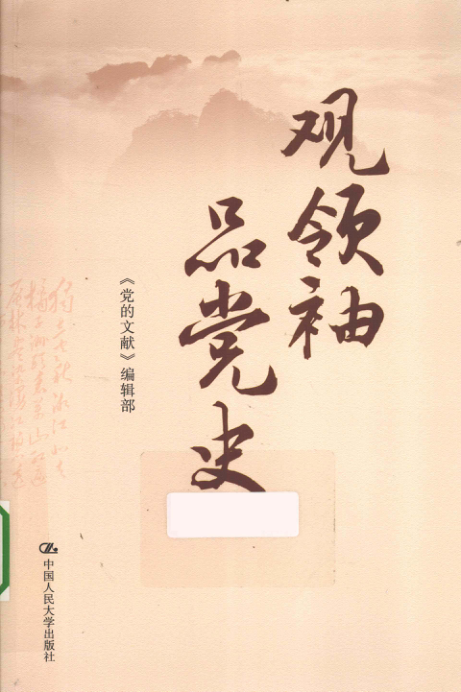 观领袖
品党史
《党的文献》编辑部
中国人民大学出版社